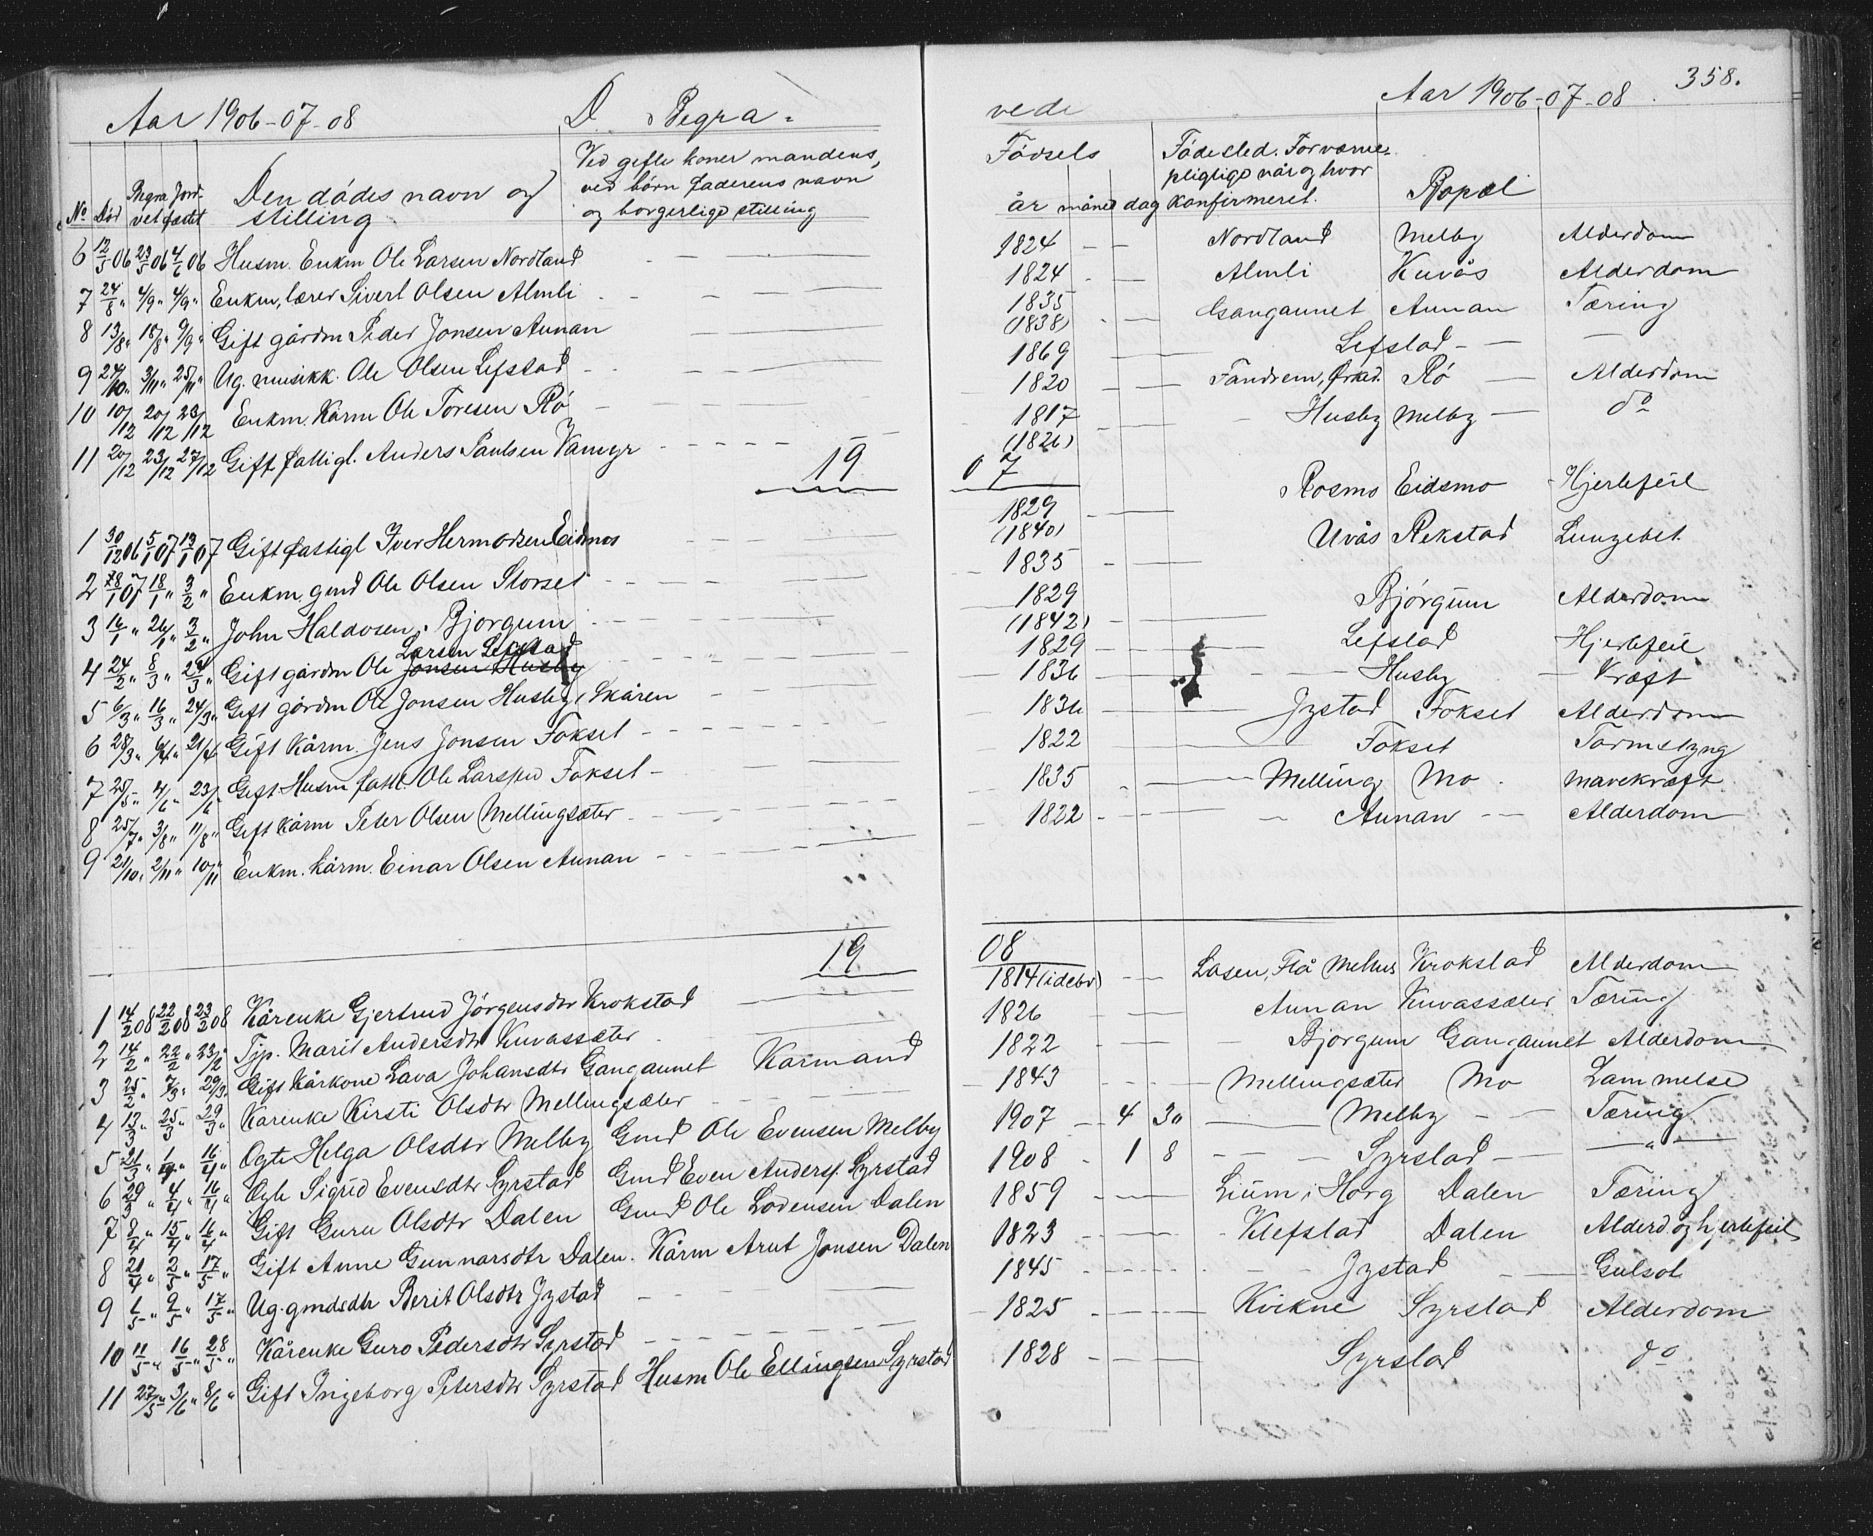 Aar 1906-07-08 D Begra-
vede Aar 1906-07-08 358.
No Død Begravet Jordfæstet Den dødes navn og stilling
Ved gifte koner mandens,
ved børn faderens navn
og borgerlige stilling
Fødsels
år måned dag
Fødested. For værne-
pligtige når og hvor
konfirmeret.
Bopæl
6 12/5 06 23/5 06 4/6 06 Husm. Enkm Ole Larsen Nordland 1824 Nordland Melby Alderdom
7 24/8 " 4/9 " 4/9 " Enkm, lærer Sivert Olsen Almli 1824 Almli Kuvås Alderdom
8 13/8 " 18/8 " 9/9 " Gift gårdm Peder Jonsen Aunan 1835 (1838) Gangaunet Aunan Tæring
9 24/10 " 3/11 " 25/11 " Ug. musikk. Ole Olsen Lefstad 1869 Lefstad
10 10/12 20/12 23/12 Enkm. Kårm Ole Toresen Rø 1820 Fandrem, Orked. Rø Alderdom
11 20/12 23/12 27/12 Gift fattigl. Anders Paulsen Vamyr 1817 (1826) Husby Melby do
19 07
1 30/12 06 5/1 07 13/1 07 Gift fattigl Iver Hermodsen Eidsmo 1829 (1840) Rosmo Eidsmo Hjertefeil
2 28/1 07 18/1 " 3/2 " Enkm. gmd Ole Olsen Storset 1835 Uvås Rekstad Lungebet.
3 16/1 " 26/1 " 3/2 " John Haldosen Bjørgum 1829 (1842) Bjørgum Alderdom
Larsen Lefstad
4 24/2 " 8/3 " 24/3 " Gift gårdm Ole Jonsen Husby 1829 Lefstad Hjertefeil
5 6/3 " 16/3 " 24/3 " Gift gårdm Ole Jonsen Husby, Skåren 1836 Husby Kræft
6 28/3 " 6/4 " 21/4 Gift Kårm. Jens Jonsen Fokset 1836 Jystad Fokset Alderdom
7 25/5 " 4/6 " 23/6 Gift Husm fattl. Ole Larssen Fokset 1822 Fokset Tarmslyng
8 25/7 " 3/8 " 11/8 " Gift kårm Peter Olsen Mellingsæter 1835 Melling Mo mavekræft
9 21/10 " 2/11 " 10/11 " Enkm. kårm. Einar Olsen Aunan 1822 Aunan Alderdom
19 08
1 14/2 08 22/2 08 23/2 08 Kårenke Gjertrud Jørgensdtr Krokstad 1814 (idebr) Losen, Flå Melhus Krokstad Alderdom
2 14/2 " 22/2 " 23/2 " Tjp. Marit Andersdtr Kuvassæter 1826 Aunan Kuvassæter Tæring
3 25/2 " 7/3 " 29/3 " Gift kårkone Lava Johansdtr Gangaunet Kårmand 1822 Bjørgum Gangaunet Alderdom
4 13/3 " 25/3 " 29/3 " Karenke Kirsti Olsdtr Mellingsæter 1843 Mellingsæter Mo Lammelse
5 21/3 " 1/4 " 16/4 " Ogte Helga Olsdtr Melby Gmd Ole Evensen Melby 1907 4 30 Melby Tæring
6 29/3 " 4/4 " 16/4 " Ogte Sigrid Evensdtr Syrstad Gmd Even Anders. Syrstad 1908 1 8 Syrstad "
7 9/4 " 15/4 " 16/4 " Gift Guru Olsdtr Dalen Gmd Ole Lodensen Dalen 1859 Lium i Horg Dalen Tæring
8 21/4 " 2/5 " 17/5 " Gift Anne Gunnarsdtr Dalen. Kårm Arnt Jonsen Dalen 1823 Klefstad Dalen Alderd. og hjertefeil
9 1/5 " 9/5 " 17/5 " Ug. gmdsdtr Berit Olsdtr Jystad 1845 Jystad Gulsot
10 11/5 " 16/5 " 28/5 " Kårenke Guro Pedersdtr Syrstad 1825 Kvikne Syrstad Alderdom
11 27/5 " 3/6 " 8/6 " Gift Ingeborg Petersdtr Syrstad Husm Ole Ellingsen Syrstad 1828 Syrstad do